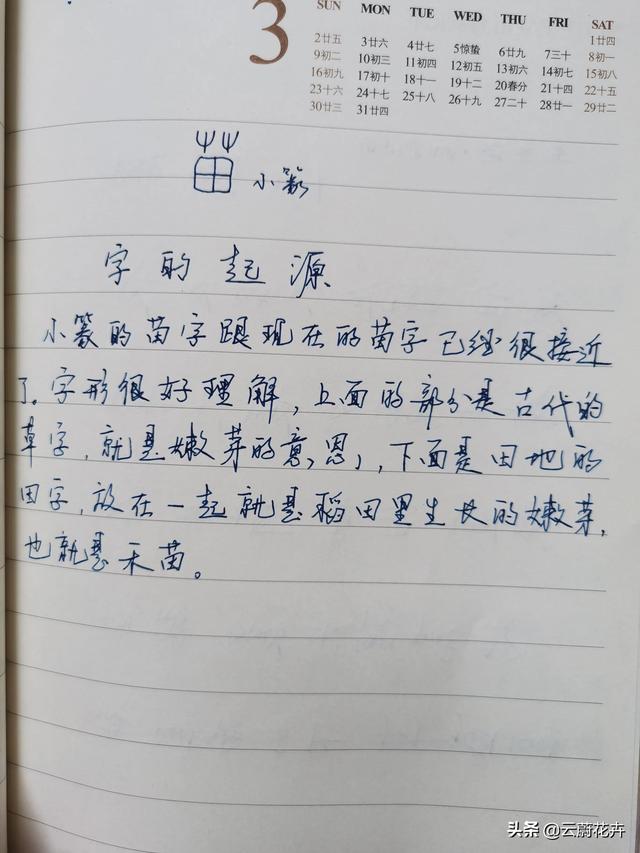 3
SUN MON TUE WED THU FRI SAT
1廿四
2廿五 3廿六 4廿七 5惊蛰 6廿九 7三十 8初一
9初二 10初三 11初四 12初五 13初六 14初七 15初八
16初九 17初十 18十一 19十二 20春分 21十四 22十五
23十六 24十七 25十八 26十九 27二十 28廿一 29廿二
30廿三 31廿四
苗 小篆
字的起源
小篆的苗字跟现在的苗字已经很接近
了。字形很好理解，上面的部分是古代的
草字，就是嫩芽的意思，下面是田地的
田字，放在一起就是稻田里生长的嫩芽，
也就是禾苗。
头条 @云蔚花卉